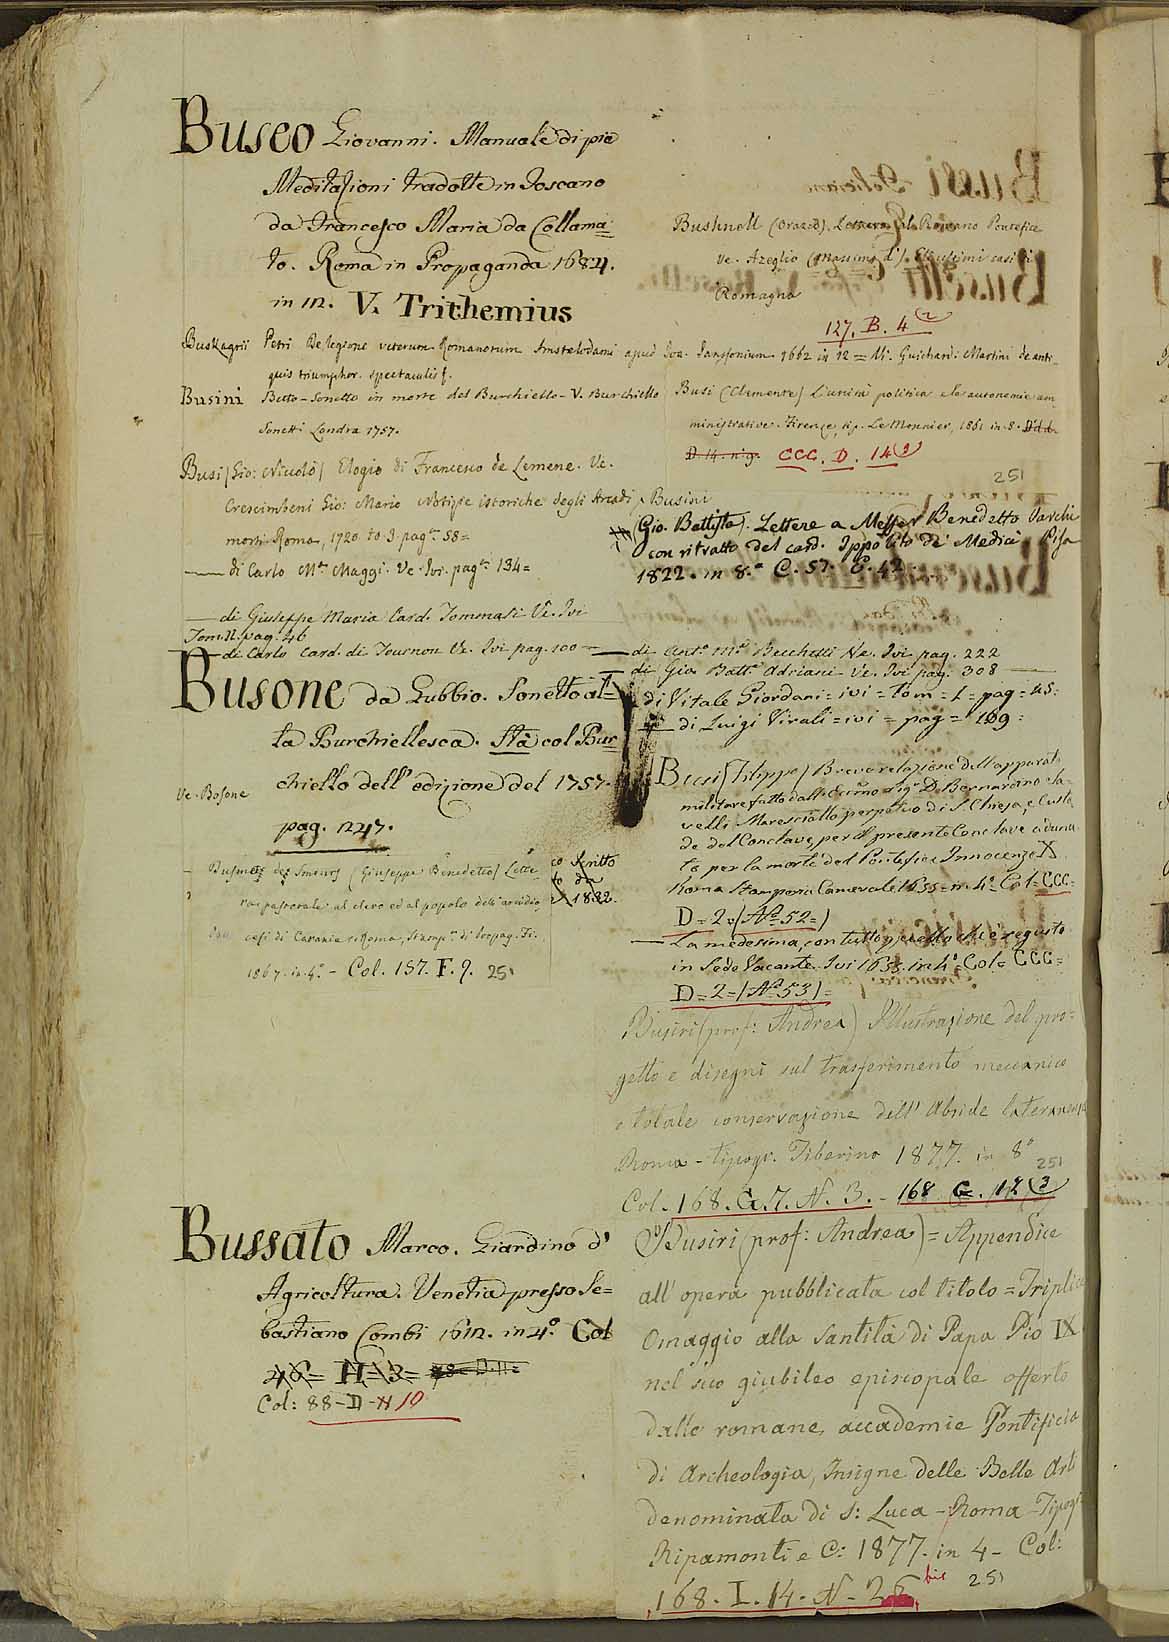 Buseo Giovanni. Manuale di pie
Meditazioni tradotte in Toscano
da Francesco Maria da Collama=
to. Roma in Propaganda 1684.
in 12. V. Trithemius
Buskagrii Petri De legione veterum Romanorum Amstelodami apud Joa. Janssonium 1662 in 12 = U. Guichard: Martini de anti_
quis triumphor. spectaculis f.
Busini Betto - Sonetto in morte del Burchiello - V. Burchiello
Sonetti Londra 1757.
Busi (Gio: Niccolò) Elogio di Francesco de Lemene. Ve.
Crescimbeni Gio: Mario Notizie istoriche degli Arcadi
morti Roma, 1720. to 3. pag. 58 =
— di Carlo Ma Maggi. Ve. Ivi. pag. 134 =
— di Giuseppe Maria Card. Tommasi Ve. Ivi
Tom. II. pag. 46
— di Carlo Card. di Tournon Ve. Ivi pag. 100 —
Busone da Gubbio. Sonetto al=
la Burchiellesca. Stà col Bur
chiello dell' edizione del 1757.
Ve. Bosone
pag. 1247.
Dusmet des Smours (Giuseppe Benedetto) Lette_
ra pastorale al clero ed al popolo dell' arcidio_
cesi di Catania = Roma, Stamp. di Propag. Fi.
1867. in 4.° - Col. 157. F. 9. 251
co scritto
to da
1832.
Bussato Marco. Giardino d'
Agricoltura. Venetia presso Se=
bastiano Combi 1612. in 4.° Col
46 = H = 3 =
Col: 88 - D - N 10
Bushnell (Orazio). Lettera al Romano Pontefice
Ve. Azeglio (Massimo d'). Gli ultimi casi di
Romagna
127. B. 4 (2
Busi (Clemente) L'unità politica e le autonomie am_
ministrative. Firenze, tip. Le Monnier, 1861 in 8.
D. 14. n. 9. CCC. D. 14 (9)
251
Busini
(Gio. Battista). Lettere a Messer Benedetto Varchi
con ritratto del card. Ippolito de' Medici Pisa
1822. in 8.° C. 57. E. 42
— di Ant.° M.a Becchetti Ve. Ivi pag. 222
— di Gio. Batt.a Adriani Ve. Ivi pag. 308 —
di Vitale Giordani = ivi = tom = 1 = pag = 45 =
— di Luigi Virali = ivi = pag = 169 =
Busi (Filippo) Breve relazione dell'apparato
militare fatto dall' Ecc.mo Sig. D. Bernardino Sa_
velli Maresciallo perpetuo di S. Chiesa, e Custo
de del Conclave, per il presente Conclave aduna
to per la morte del Pontefice Innocenzo X.
Roma Stamperia Camerale 1655 = in 4.° Col = CCC =
D = 2 = (N.° 52 =)
— La medesima, con tutto quello che è seguito
in Sede Vacante. Ivi 1655. in 4.° = Col = CCC =
D = 2 = (N.° 53) =
Busiri (prof: Andrea) Illustrazione del pro=
getto e disegni sul trasferimento meccanico
e totale conservazione dell' Abside lateranense
Roma - tipogr. Tiberina 1877. in 8°
251
Col. 168. G. 7. N. 3. - 168 G. 12 (3)
Busiri (prof: Andrea) = Appendice
all' opera pubblicata col titolo = Triplice
Omaggio alla Santità di Papa Pio IX
nel suo giubileo episcopale offerto
dalle romane accademie Pontificia
di Archeologia, Insigne delle Belle Arti
denominata di S: Luca - Roma - Tipogr.
Ripamonti e C: 1877. in 4 - Col:
168. I. 14. N. 26 bis 251